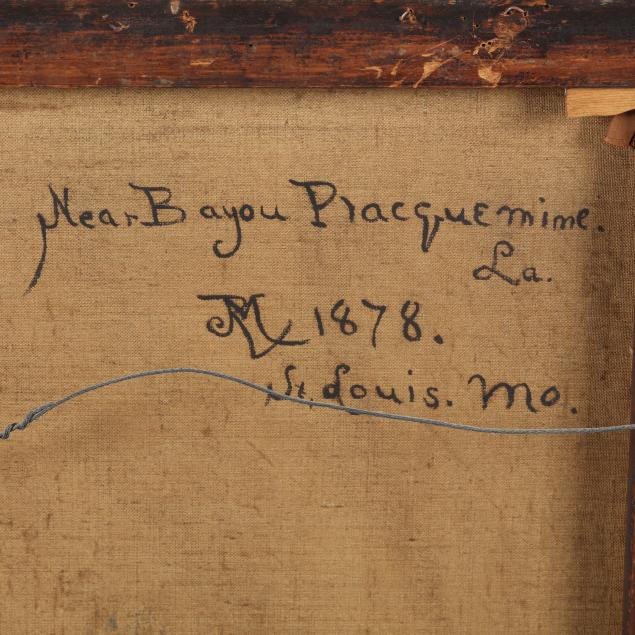 Near Bayou Pracquemine.
La.
JRM 1878.
St. Louis. Mo.